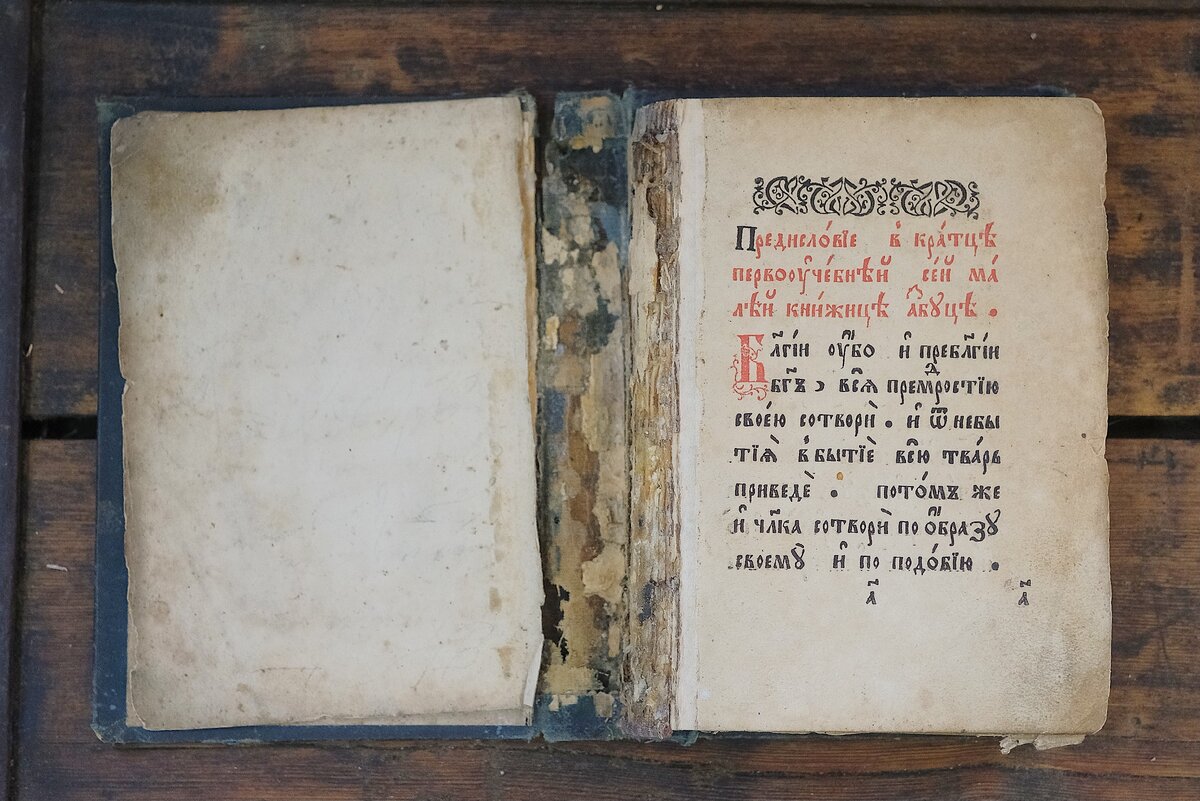 Предисло́вїе в кра́тцѣ
первоꙋче́бнѣй се́й ма́
лѣй кни́жицѣ а҆́збꙋцѣ .
Бл҃гі́и ᲂу҆́бо и҆ пребл҃гі́и
бг҃ъ , всѧ̀ премⷣростїю
свое́ю сотворѝ . и҆ ѿ небы
тїѧ̀ в бытїѐ всю̀ тва́рь
приведѐ . пото́мъ же
и҆ чл҃ка сотворѝ по ѻ҆́бразꙋ
своемꙋ̀ и҆ по подо́бїю .
а҃ а҃